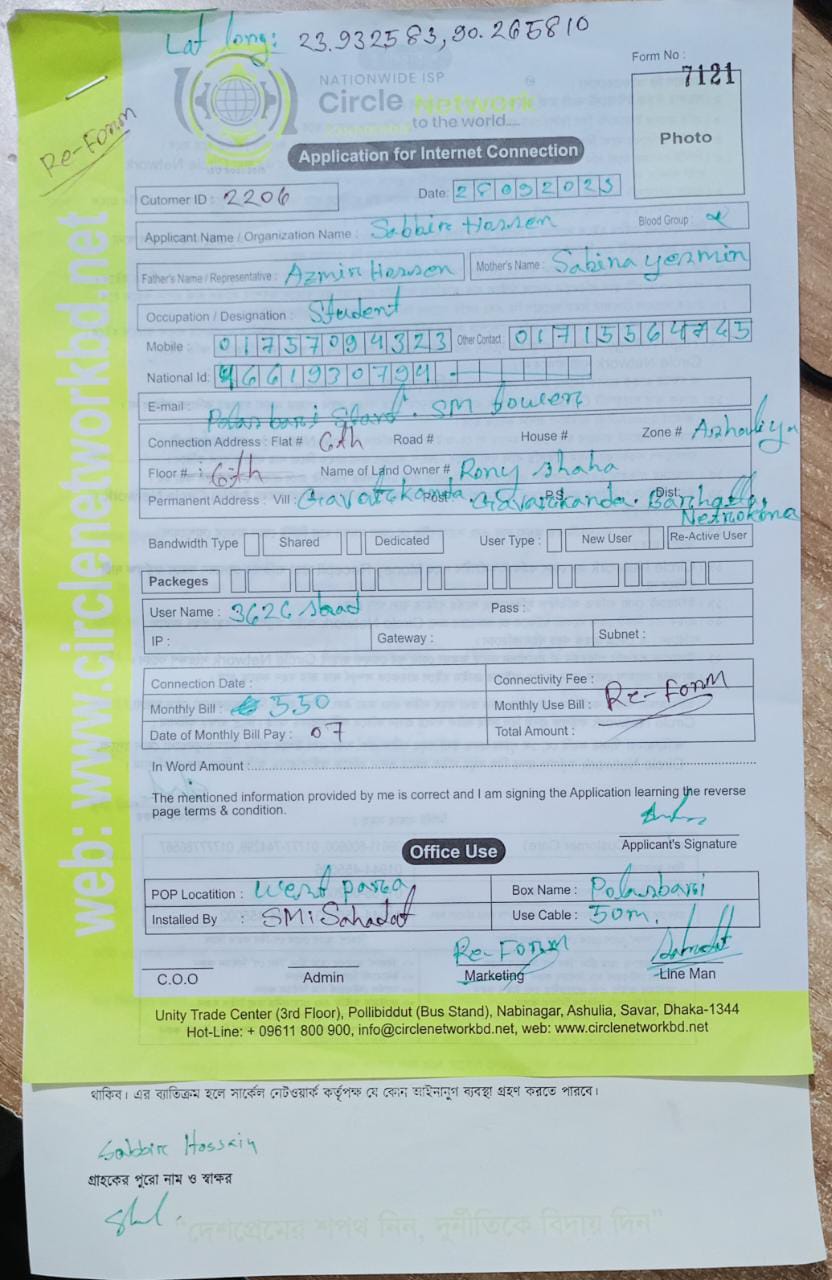 Lat long: 23.932583,90.265810
Form No :
7121
NATIONWIDE ISP
Circle Network
to the world....
Re-Form
Photo
Application for Internet Connection
Cutomer ID : 2206
Date:
Applicant Name / Organization Name : Sabbir Hassen
Blood Group :
Father's Name / Representative : Azmir Hossen
Mother's Name : Sabina yesmin
Occupation / Designation : Student
Mobile : 01757094323 Other Contact : 0171556
National Id: 661930794
E-mail :
Polasbari Stand. SM
Connection Address : Flat # 6th Road # House # Zone # Ashouliya
Floor # : 6th Name of Land Owner # Rony shaha
Permanent Address : Vill : Post: P.S: Dist:
Netrokona
Bandwidth Type Shared Dedicated User Type : New User Re-Active User
Packeges
User Name : 3626 Pass :
IP : Gateway : Subnet :
Connection Date : Connectivity Fee :
Monthly Bill : 550 Monthly Use Bill : Re-Form
Date of Monthly Bill Pay : 07 Total Amount :
In Word Amount :
The mentioned information provided by me is correct and I am signing the Application learning the reverse
page terms & condition.
Applicant's Signature
Office Use
POP Locatition : West para Box Name : Polasbari
Installed By : SMi Sahadat Use Cable : 50m.
Re-Form
C.O.O Admin Marketing Line Man
Unity Trade Center (3rd Floor), Pollibiddut (Bus Stand), Nabinagar, Ashulia, Savar, Dhaka-1344
Hot-Line: + 09611 800 900, info@circlenetworkbd.net, web: www.circlenetworkbd.net
web: www.circlenetworkbd.net
থাকিব। এর ব্যতিক্রম হলে সার্কেল নেটওয়ার্ক কর্তৃপক্ষ যে কোন আইনানুগ ব্যবস্থা গ্রহণ করতে পারবে।
Sabbir Hossain
গ্রাহকের পুরো নাম ও স্বাক্ষর
"দেশপ্রেমের শপথ নিন, দুর্নীতিকে বিদায় দিন"